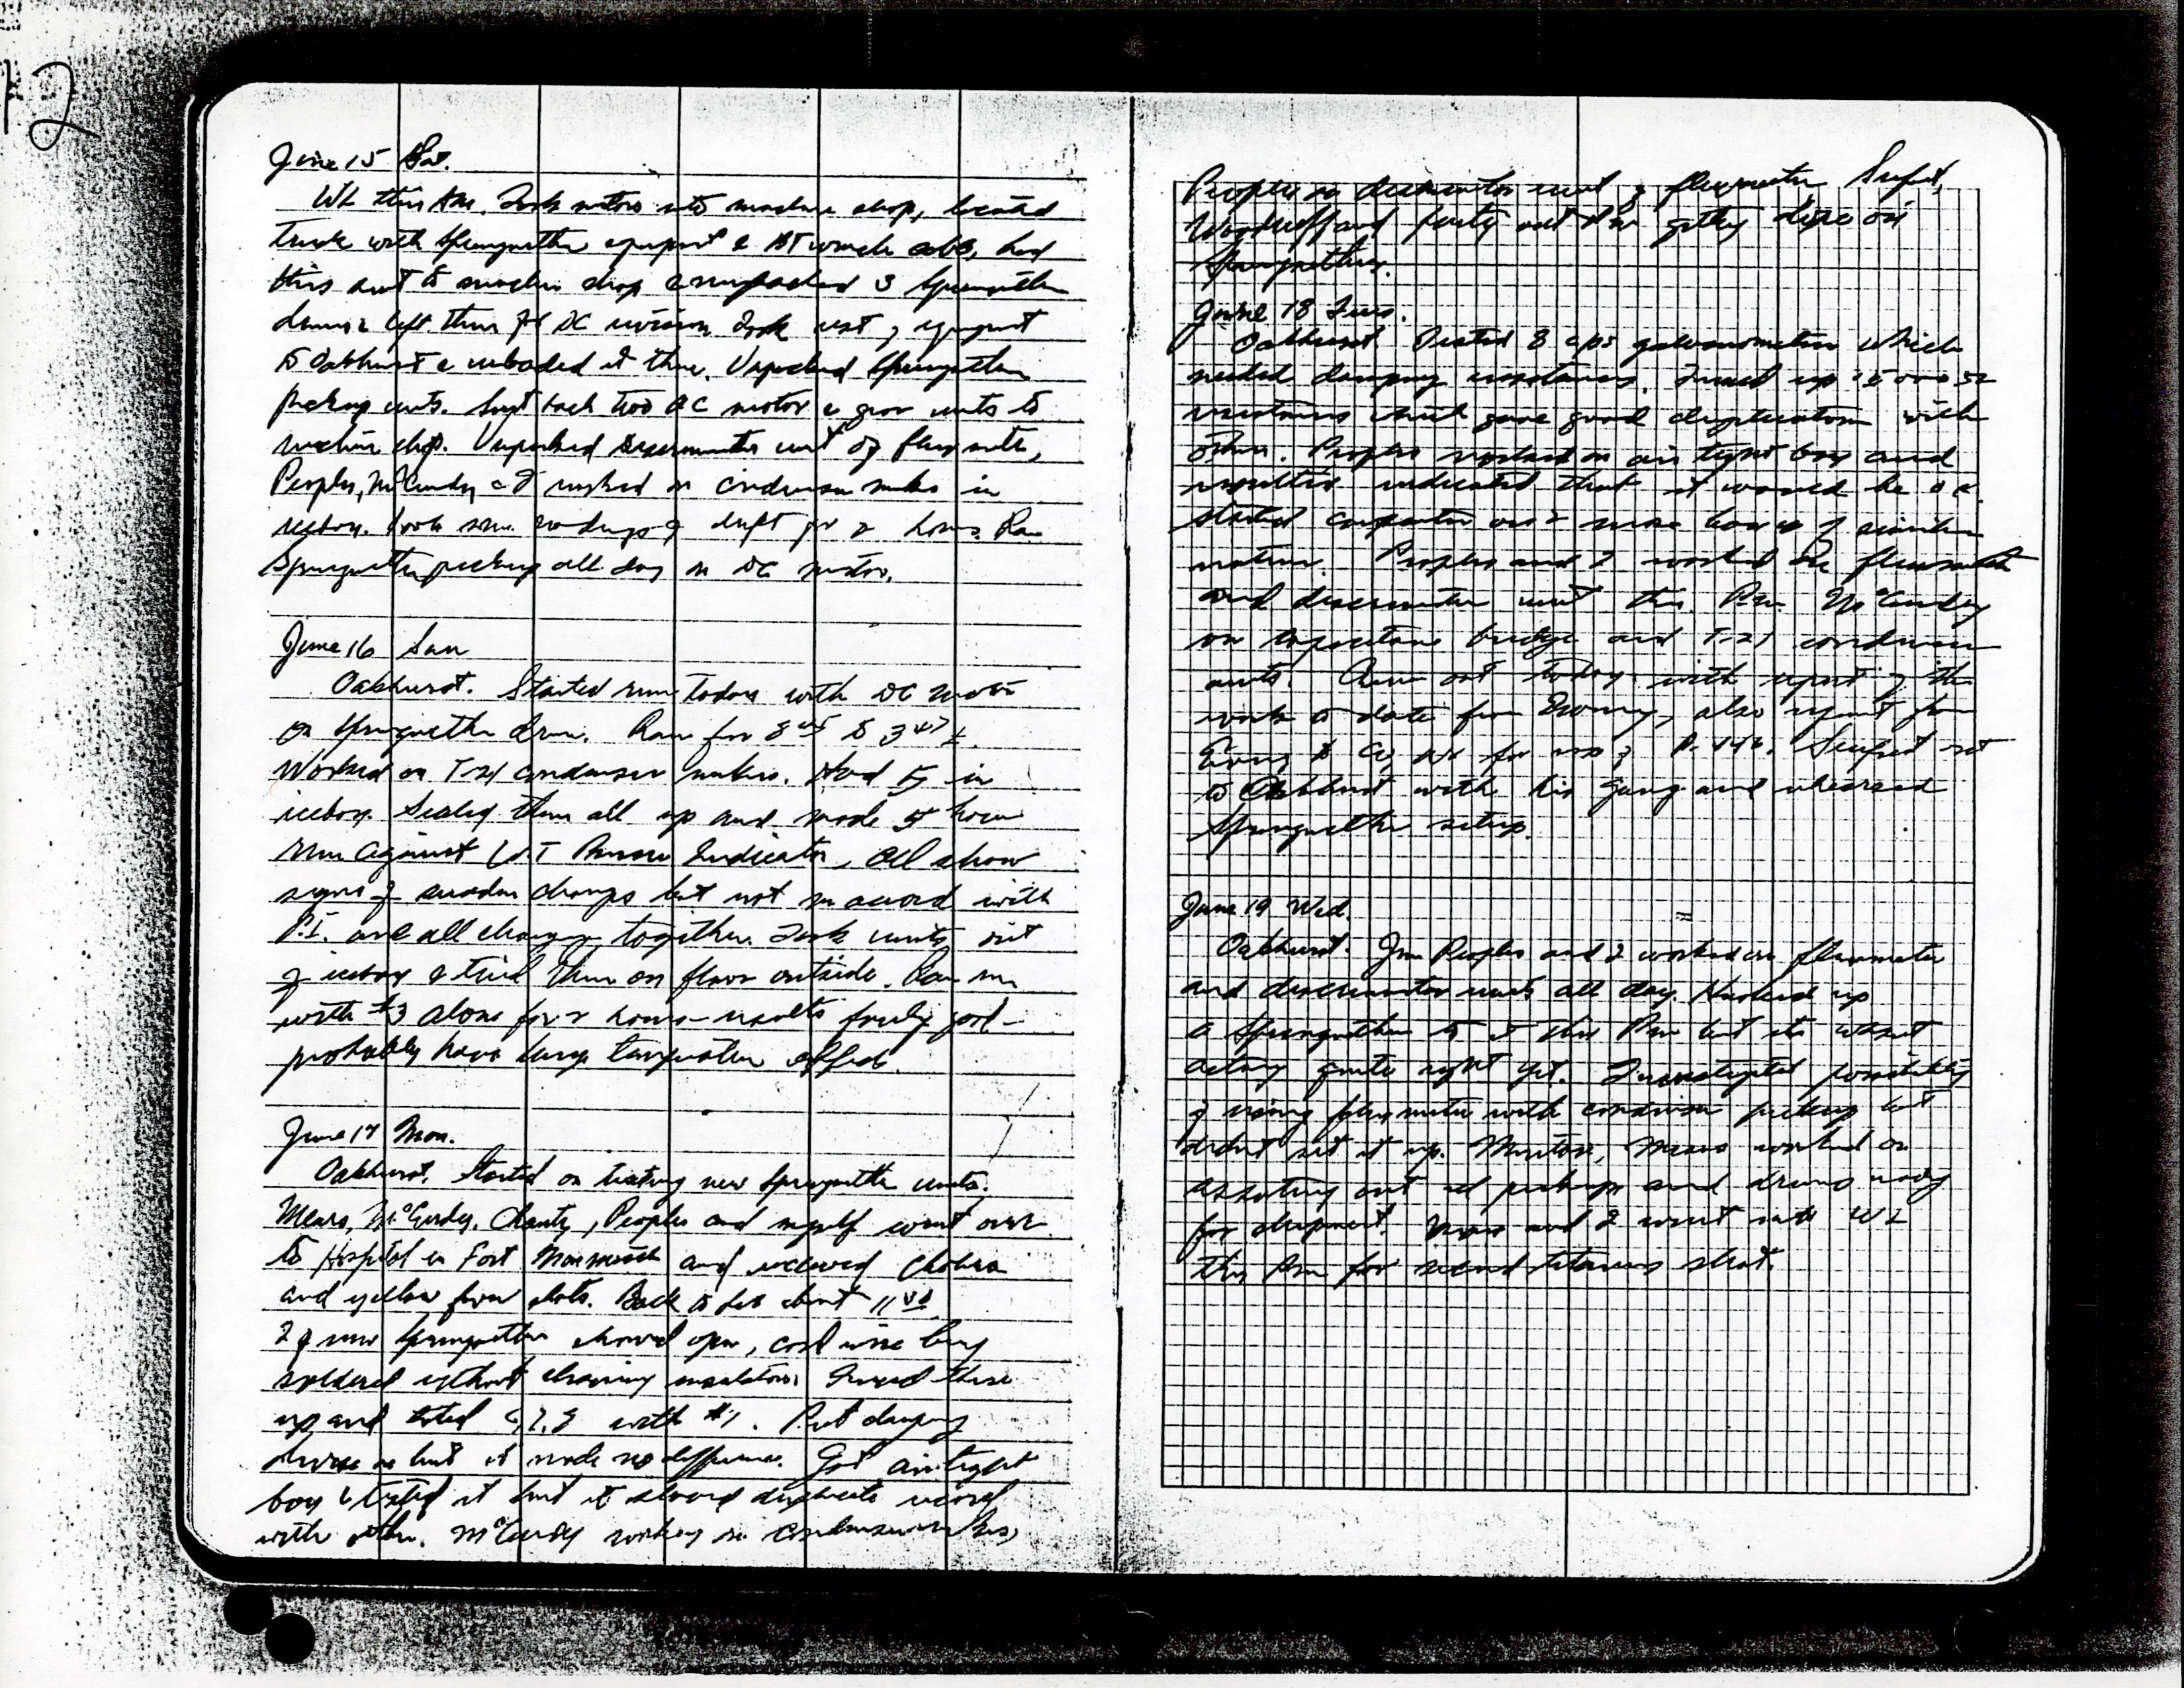 12
June 15 Sat.
WL this AM. Took motors into machine shop, located
truck with Sprengnether equipment & winch cable, had
this sent to machine shop & unpacked 3 Sprengnether
drums & left them for DC revision. Took rest of equipment
to Oakhurst & unloaded it there. Unpacked Sprengnether
pickup units. Sent back two DC motor & gear units to
machine shop. Unpacked discriminator unit of fluxmeter,
Peoples, McCurdy & I worked on condenser mikes in
icebox. Took some readings of drift for 2 hours. Ran
Sprengnether pickup all day on DC motor.
June 16 Sun
Oakhurst. Started run today with DC motor
on Sprengnether drum. Ran for 8 45 to 3 47
Worked on T-21 condenser mikes. Had 5 in
icebox. Sealed them all up and made 5 hour
run against Indicator. All show
signs of sudden changes but not in accord with
P.I. and all changing together. Took units out
of icebox & tried them on floor outside. Ran run
with #3 alone for 2 hours - results fairly good -
probably have large temperature effect.
June 17 Mon.
Oakhurst. Started on testing new Sprengnether units.
Mears, McCurdy, Chantz, Peoples and myself went over
to Hospital in Fort Monmouth and received cholera
and yellow fever shots. Back to lab about 11
2 of new Sprengnethers showed open, coil wire being
soldered without cleaning insulation. Fixed these
up and tested with #1. Put damping
device on but it made no difference. Got air tight
box & tested it but it showed duplicate record
with other. McCurdy working on condenser mikes,
Peoples on discriminator unit of fluxmeter. Seufert,
Woodruff and party out here getting dope on
Sprengnethers.
June 18 Tues.
Oakhurst. Tested 8 cps galvanometers which
needed damping resistances. Fixed up 15000 Ω
resistances which gave good duplication with
others. Peoples worked on air tight box and
results indicated that it would be O.K.
Started carpenter on 2 more boxes of similar
nature. Peoples and I worked on fluxmeter
and discriminator unit this P.M. McCurdy
on capacitance bridge and T-21 condenser
units. out today with report of the
work to date from Ewing, also report from
Ewing to for use of Seufert out
to Oakhurst with his gang and rehearsed
Sprengnether setup.
June 19 Wed.
Oakhurst. Jim Peoples and I worked on fluxmeter
and discriminator units all day. Hooked up
a Sprengnether to it this PM but it wasn't
acting quite right yet. Investigated possibility
of using fluxmeter with condenser pickup but
didn't set it up. Mears worked on
assorting out all pickups and drums ready
for shipment. Mears and I went into WL
this PM for second tetanus shot.